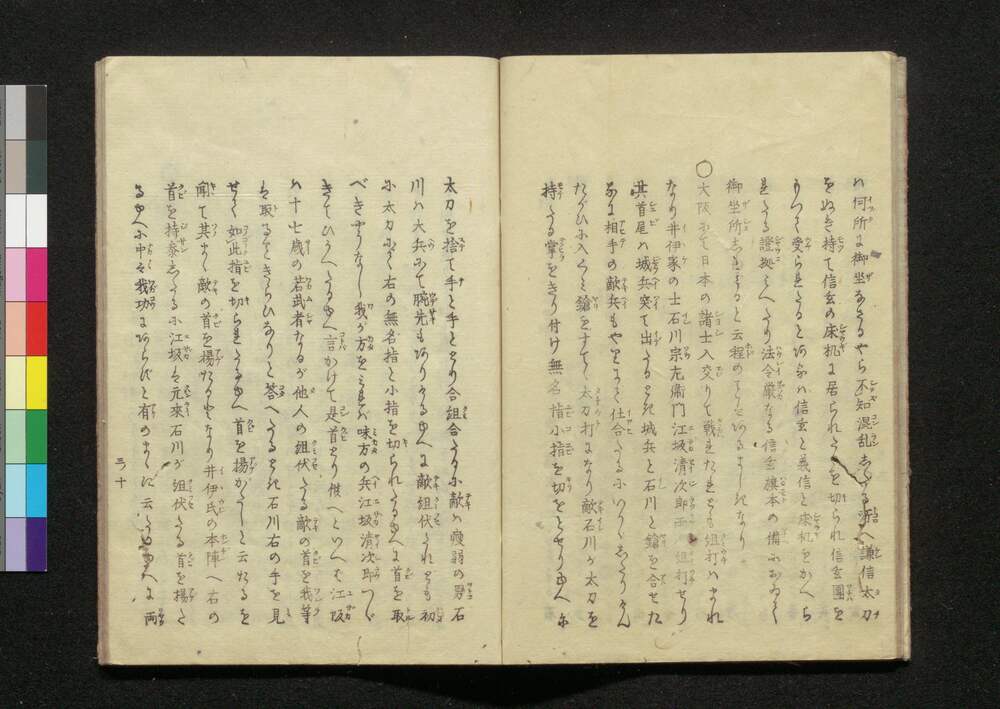 ハ何所に御坐あるやら不知混乱したる所へ謙信太刀
をぬき持て信玄の床机に居られたるを切られ信玄團を
もつて受られたると
信玄と義信と床机をかへら
れたる證拠
法令厳なる信玄旗本の備に
御坐所
と云程の
なり
○大阪にて日本の諸士入交りて戦れたれども組打ハ
なり井伊家の士石川宗左衛門江坂清次郎
組打せり
其首尾ハ城兵突て出たるとき城兵と石川と鎗を合せた
るに相手の敵兵も
と仕合たるに
たがひに入くミ鎗をすてゝ太刀打になり敵石川が太刀を
持たる掌をきり付け無名指小指を切をとせりゆへに
太刀を捨て手と手ととり合組合たるに敵ハ痩弱の男石
川ハ大兵にて腕先も
ゆへに敵組伏られども初
に太刀にて右の無名指と小指を切られたるゆへに首を取
べきやうなし我が方をミれば味方の兵江坂清次郎つゞ
きてひかへたるゆへ言かけて是首とり候へといへば江坂
ハ十七歳の若武者なるが他人の組伏たる敵の首を我等
は取ることきらひなりと答へたるとき石川右の手を見
せて如此指を切られたるゆへ首を揚がたしと云たるを
聞て其まゝ敵の首を揚たるとなり井伊氏の本陣へ右の
首を持参したるに江坂は元来石川が組伏たる首を揚た
るゆへに中々我功にあらずと有のまゝに云たるゆへに両
三十